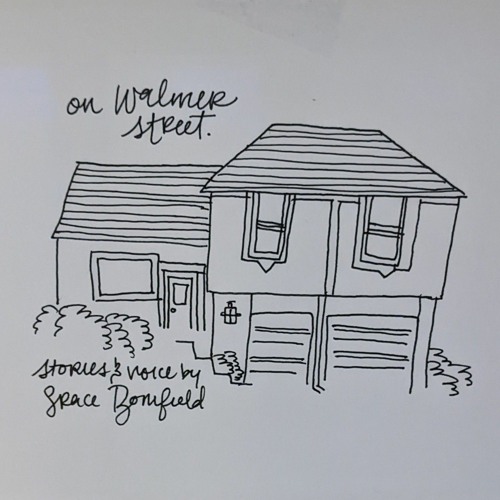 on Walmer
street.
stories & voice by
Grace Bomfield